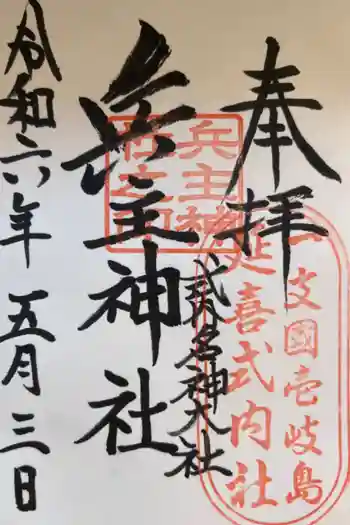 奉拝
一支國壱岐島
延喜式内社
兵主神
社之印
兵主神社
名神大社
令和六年五月三日